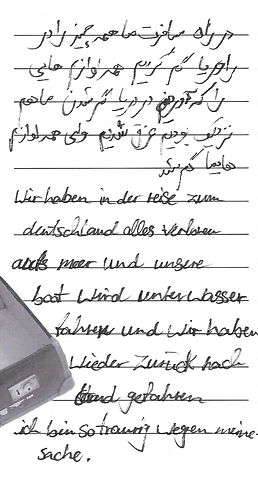 در راه مسافرت ما همه چیز را در
را دریا گم کردیم همه لوازم هایی
را که آوردیم در دریا گم شدن ما هم
نزدیک بودیم غرق شدیم ولی همه لوازم
هایما گم شد
Wir haben in der reise zum
deutschland alles verloren
moer und unsere
boot wird unter wasser
fahren und wir haben
wieder zurück nach
gefahren
ich bin so traurig wegen meine
sache.